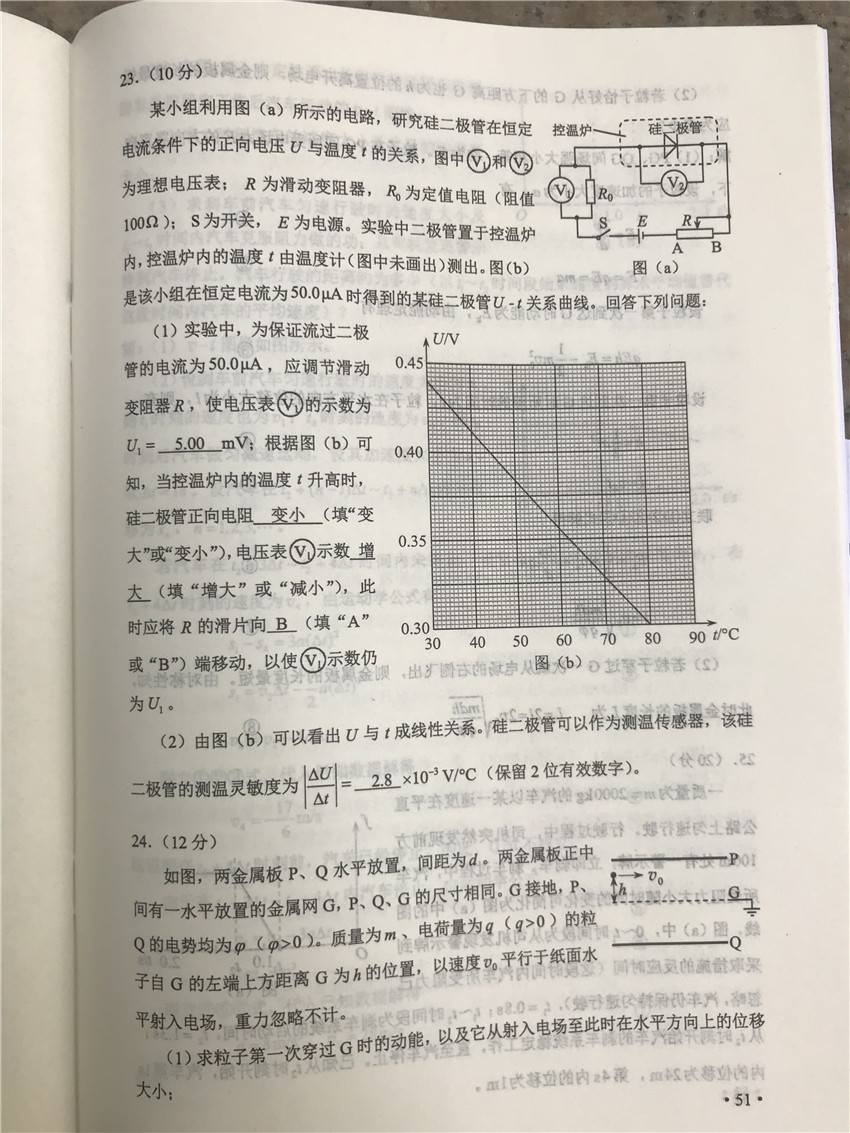 23.（10分）
某小组利用图（a）所示的电路，研究硅二极管在恒定
电流条件下的正向电压U与温度t的关系，图中V₁和V₂
为理想电压表； R为滑动变阻器， R₀为定值电阻（阻值
100Ω）； S为开关， E为电源。实验中二极管置于控温炉
内，控温炉内的温度t由温度计（图中未画出）测出。图（b）
是该小组在恒定电流为50.0μA时得到的某硅二极管U-t关系曲线。回答下列问题：
控温炉
硅二极管
V₁
R₀
V₂
S
E
R
A
B
图（a）
（1）实验中，为保证流过二极
管的电流为50.0μA，应调节滑动
变阻器R，使电压表V₁的示数为
U₁= 5.00 mV；根据图（b）可
知，当控温炉内的温度t升高时，
硅二极管正向电阻 变小 （填“变
大”或“变小”），电压表V₁示数 增
大 （填“增大”或“减小”），此
时应将R的滑片向 B （填“A”
或“B”）端移动，以使V₁示数仍
为U₁。
U/V
0.45
0.40
0.35
0.30
30 40 50 60 70 80 90 t/°C
图（b）
（2）由图（b）可以看出U与t成线性关系。硅二极管可以作为测温传感器，该硅
二极管的测温灵敏度为|ΔU/Δt|= 2.8 ×10⁻³ V/°C（保留2位有效数字）。
24.（12分）
如图，两金属板P、Q水平放置，间距为d。两金属板正中
间有一水平放置的金属网G，P、Q、G的尺寸相同。G接地，P、
Q的电势均为φ（φ>0）。质量为m、电荷量为q（q>0）的粒
子自G的左端上方距离G为h的位置，以速度v₀平行于纸面水
平射入电场，重力忽略不计。
P
v₀
h
G
Q
（1）求粒子第一次穿过G时的动能，以及它从射入电场至此时在水平方向上的位移
大小；
·51·